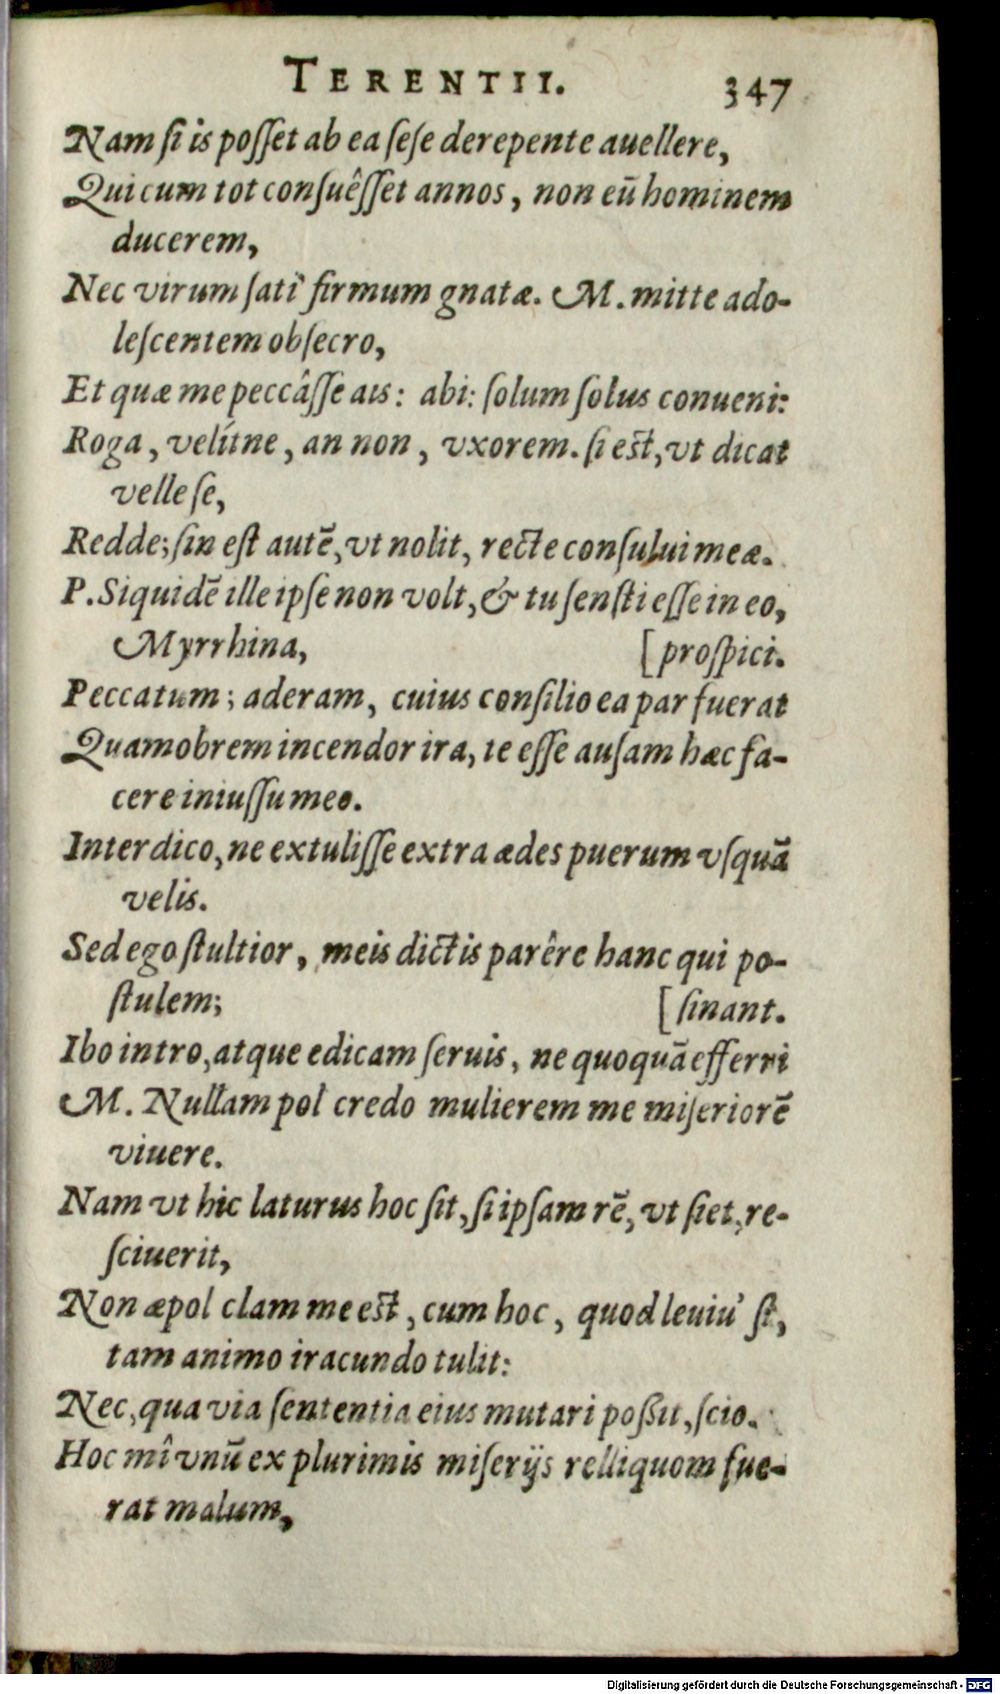 TERENTII. 347
Nam ſi is poſſet ab ea ſeſe derepente auellere,
Qui cum tot conſuêſſet annos, non eũ hominem
ducerem,
Nec virum ſati' firmum gnatæ. M. mitte ado-
leſcentem obſecro,
Et quæ me peccâſſe ais: abi: ſolum ſolus conueni:
Roga, velítne, an non, vxorem. ſi est, vt dicat
velle ſe,
Redde; ſin eſt autẽ, vt nolit, recte conſului meæ.
P. Siquidẽ ille ipſe non volt, & tu ſenſti eſſe in eo,
Myrrhina, [proſpici.
Peccatum; aderam, cuius conſilio ea par fuerat
Quamobrem incendor ira, te eſſe auſam hæc fa-
cere iniuſſu meo.
Interdico, ne extuliſſe extra ædes puerum vſquã
velis.
Sed ego ſtultior, meis dictis parêre hanc qui po-
ſtulem; [ſinant.
Ibo intro, atque edicam ſeruis, ne quoquã efferri
M. Nullam pol credo mulierem me miſeriorẽ
viuere.
Nam vt hic laturus hoc ſit, ſi ipſam rẽ, vt ſiet, re-
ſciuerit,
Non æpol clam me est, cum hoc, quod leuiu' ſt,
tam animo iracundo tulit:
Nec, qua via ſententia eius mutari poßit, ſcio.
Hoc mî vnũ ex plurimis miſerijs relliquom fue-
rat malum,
Digitalisierung gefördert durch die Deutsche Forschungsgemeinschaft - DFG